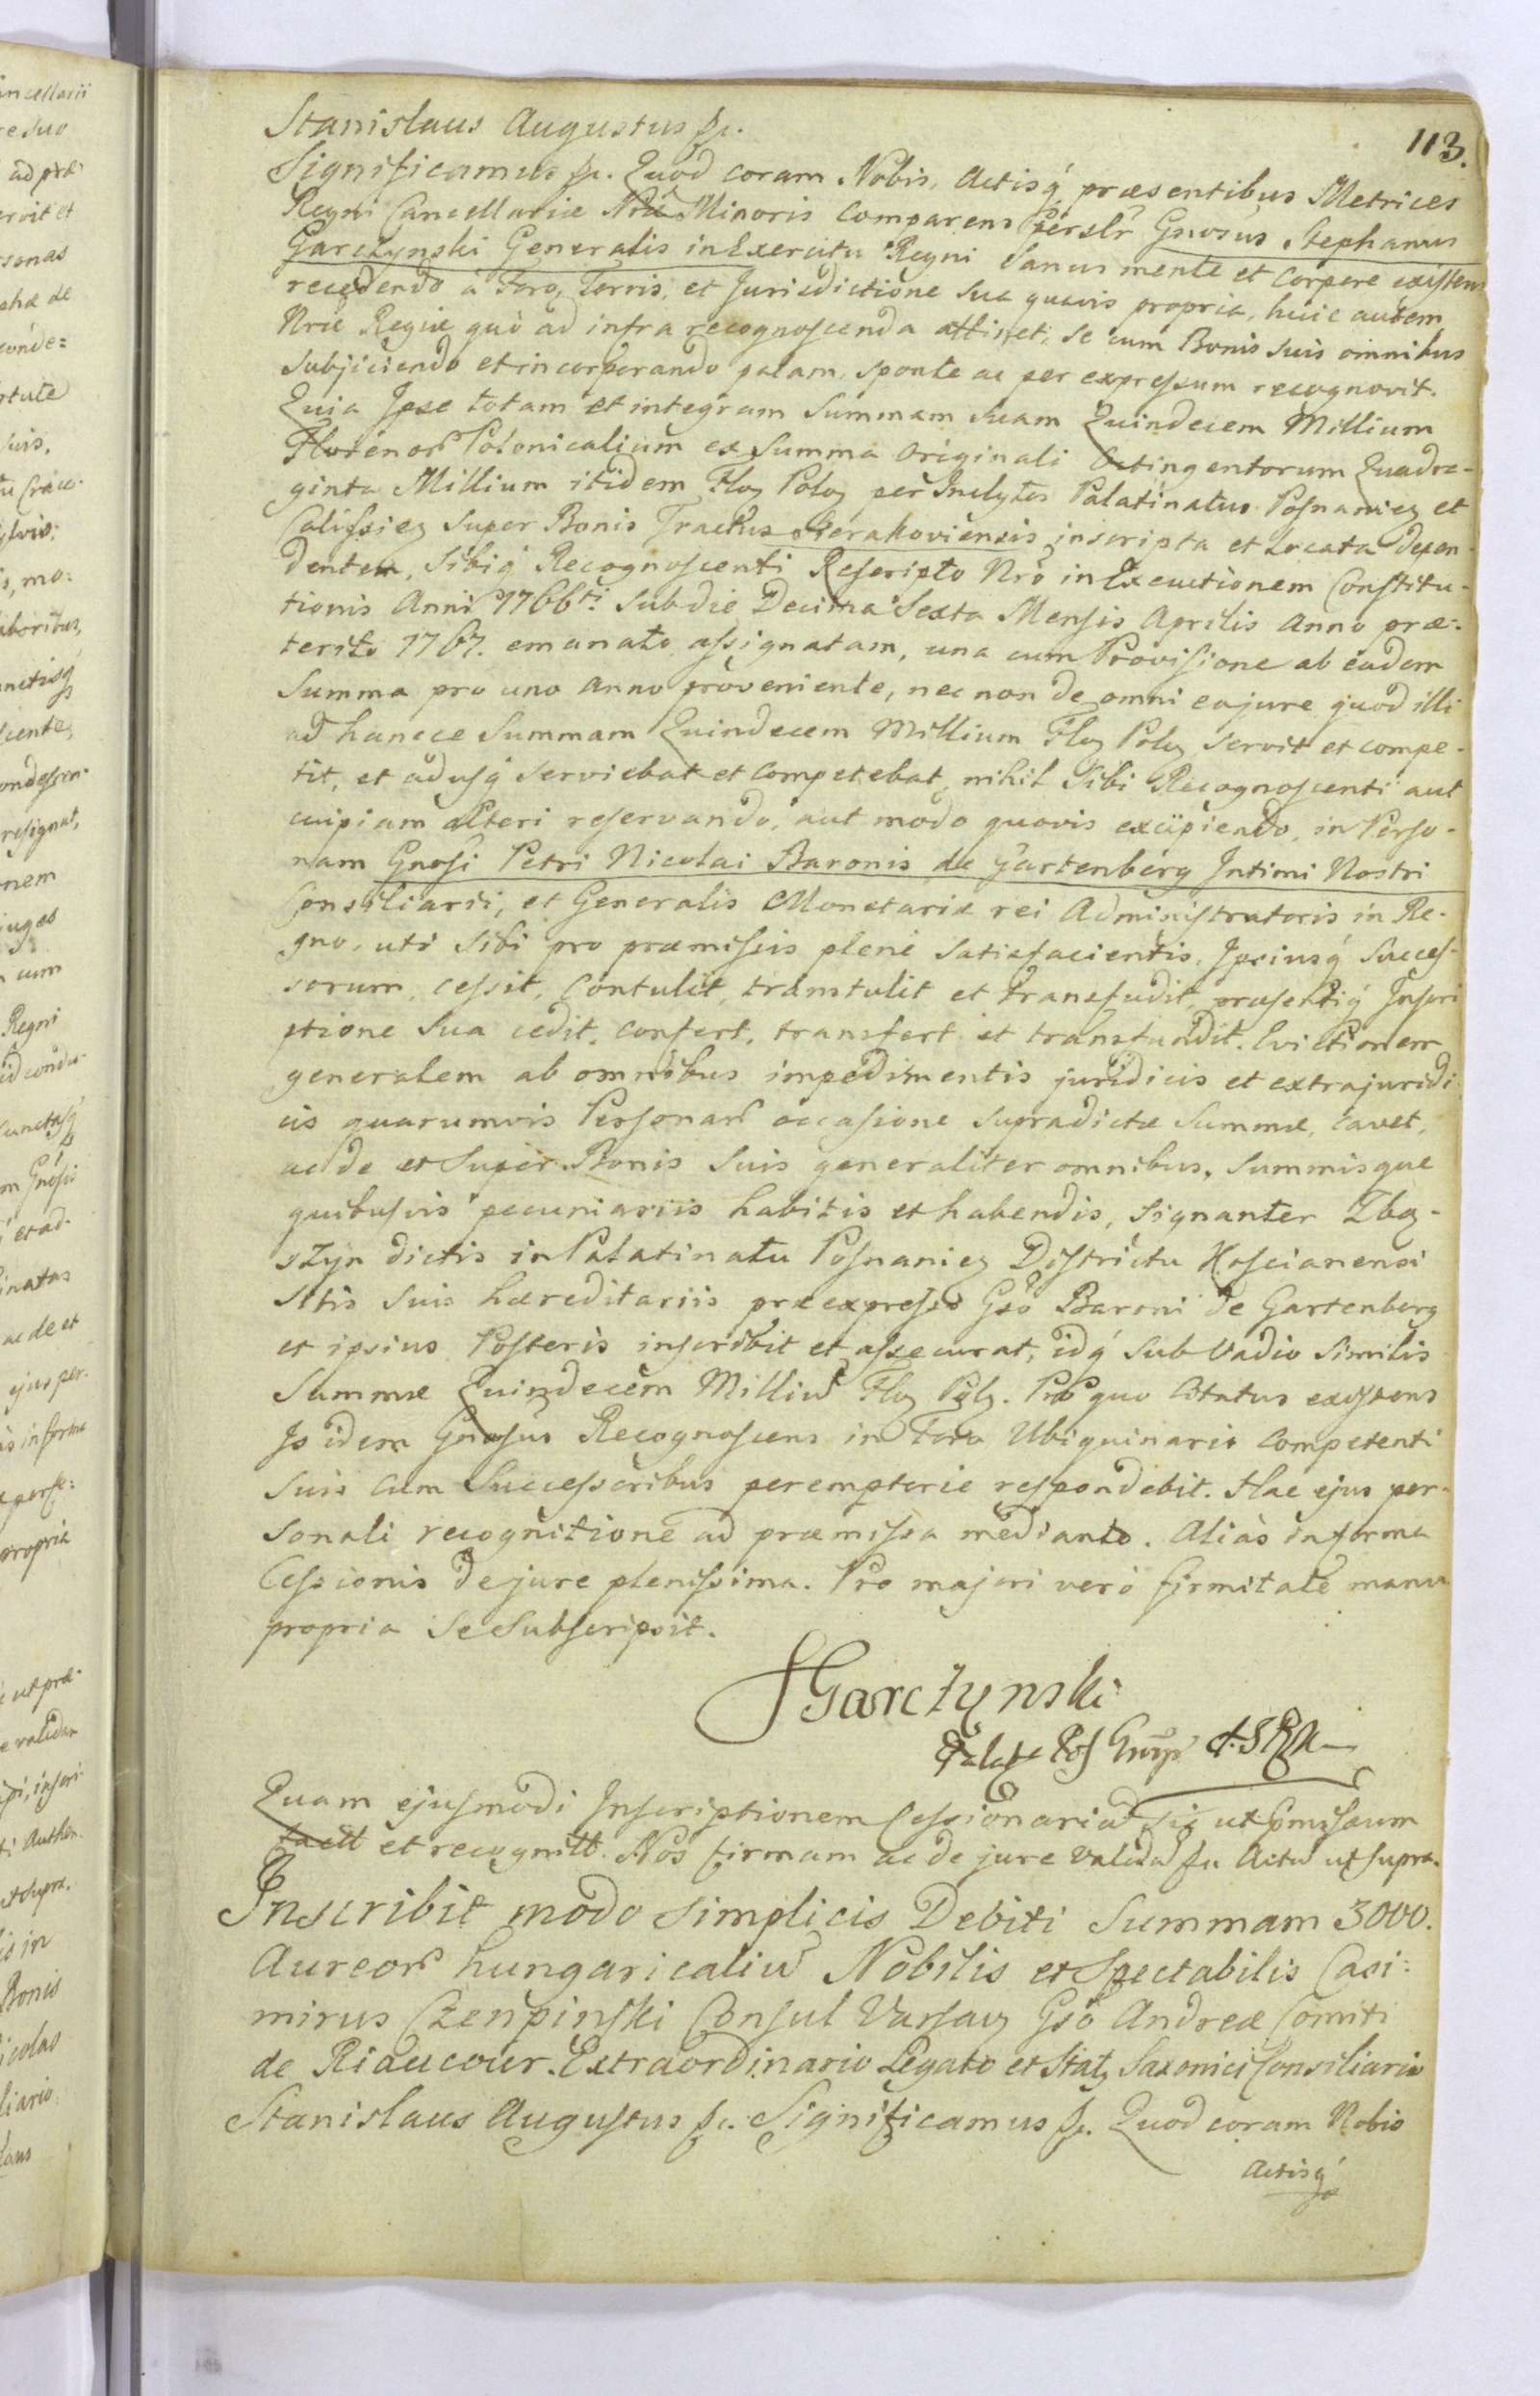 113.
Stanislaus Augustus &c.
Significamus &c. Quod coram Nobis, Actisq́ præsentibus Metrices
Regni Cancellariæ Nrae Minoris Comparens Perslr Gnosus Stephanus
Garczynski Generalis in Exercitu Regni Sanus mente et Corpore existens
recedendo à Foro, Terris, et Jurisdictione sua quavis propria, huic autem
Nræ Regiæ quò ad infra recognoscenda attinet, se cum Bonis suis omnibus
subjiciendo et incorporando palam, sponte ac per expressum recognovit.
Quia Ipse totam et integram Summam suam Quindecem Millium
Florenor Polonicalium ex Summa Originali Octingentorum Quadra-
ginta Millium itidem Flor Polo per Inclytos Palatinatus Posnanien et
Calissien Super Bonis Tractus Sierakoviensis inscripta et Locata depen-
dentem, Sibiq́ Recognoscenti Rescripto Nrò in Executionem Constitu-
tionis Anni 1766ti Sub die Decima Sexta Mensis Aprilis Anno præ-
terito 1767. emanato, assignatam, una cum Provisione ab eadem
Summa pro uno Anno proveniente, nec non de omni eo jure quod illi
ad hancce Summam Quindecem Millium Flor Polo servit et compe-
tit, et adusq́ serviebat et Competebat, nihil Sibi Recognoscenti aut
cuipiam alteri reservando, aut modo quovis excipiendo, in Perso-
nam Gnosi Petri Nicolai Baronis de Gartenberg Intimi Nostri
Consiliarii, et Generalis Monetariæ rei Administratoris in Re-
gno, uti Sibi pro præmissis plenè satisfacientis, Ipsiusq́ Succes-
sorum, cessit, Contulit, transtulit et transfudit, præsentiq́ Inscri
ptione Sua cedit, confert, transfert et transfundit. Evictionem
generalem ab omnibus impedimentis juridicis et extrajuridi
cis quarumvis Personar occasione supradictæ Summæ, cavet,
ac de et Super Bonis Suis generaliter omnibus, Summisque
quibusvis pecuniariis habitis et habendis, Signanter Zbą-
szyn dictis in Palatinatu Posnanien Districtu Koscianensi
sitis Suis hæreditariis præexpresso Gsò Baroni de Gartenberg
et ipsius Posteris inscribit et assecurat, idq́ Sub Vadio Similis
Summæ Quindecem Milliū Flor Polo. Pro quo Citatus existens
Is idem Gnosus Recognoscens in Foro Ubiquinario Competenti
Suis cum Successoribus peremptorie respondebit. Hac ejus per-
sonali recognitione ad præmissa mediante. Aliàs in forma
Cessionis de jure plenissima. Pro majori verò firmitate manu
propria Se Subscripsit.
SGarczynski
Quam ejusmodi Inscriptionem Cessionariā sic ut Pmissum
factt et recognitt. Nos firmam ac de jure validā &c. Actū ut supra.
Inscribit modo simplicis Debiti Summam 3000.
Aureor hungaricaliū Nobilis et Spectabilis Casi-
mirus Czenpinski Consul Varsav Gsò Andreæ Comiti
de Riaucour Extraordinario Legato et Stat Saxonici Consiliario
Stanislaus Augustus &c. Significamus &c. Quod coram Nobis
Actisq́